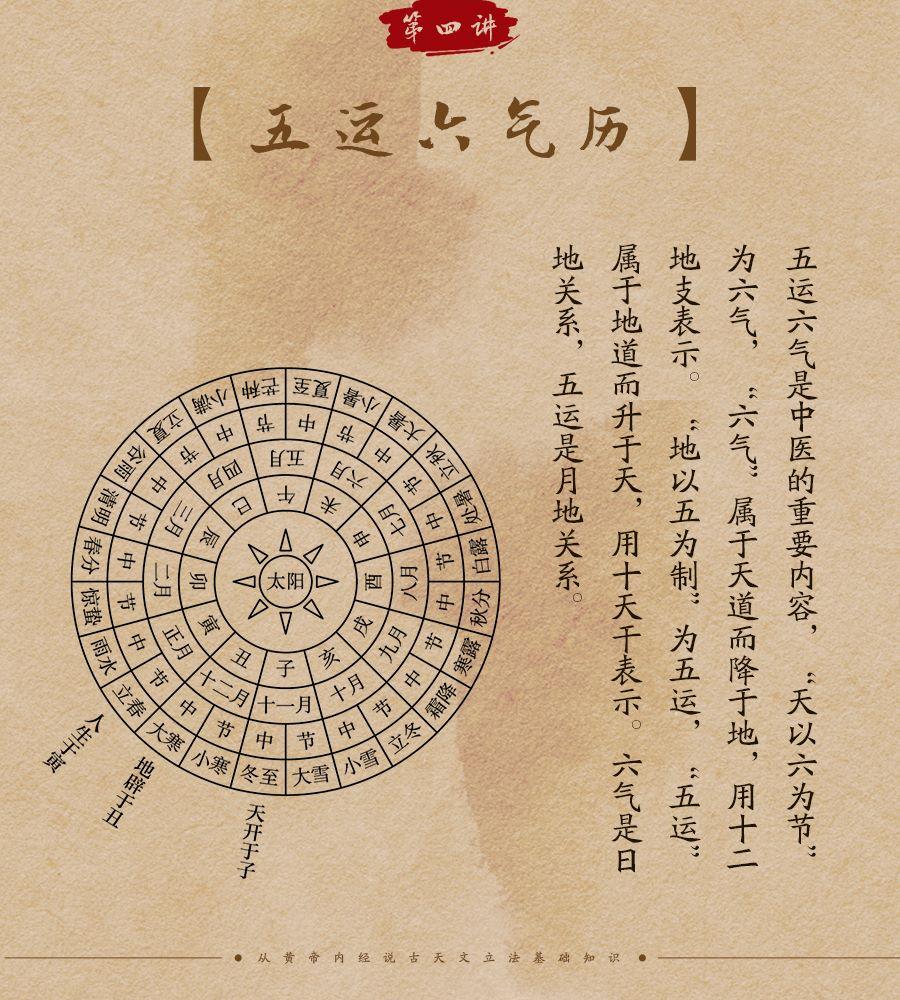 第四讲
【五运六气历】
五运六气是中医的重要内容，“天以六为节”
为六气，“六气”属于天道而降于地，用十二
地支表示。“地以五为制”为五运，“五运”
属于地道而升于天，用十天干表示。六气是日
地关系，五运是月地关系。
夏至 小暑 大暑 立秋 处暑 白露 秋分 寒露 霜降 立冬 小雪 大雪 冬至 小寒 大寒 立春 雨水 惊蛰 春分 清明 谷雨 立夏 小满 芒种
中 节 中 节 中 节 中 节 中 节 中 节 中 节 中 节 中 节 中 节 中 节 中 节
五月 六月 七月 八月 九月 十月 十一月 十二月 正月 二月 三月 四月
午 未 申 酉 戌 亥 子 丑 寅 卯 辰 巳
太阳
人生于寅
地辟于丑
天开于子
从黄帝内经说古天文立法基础知识